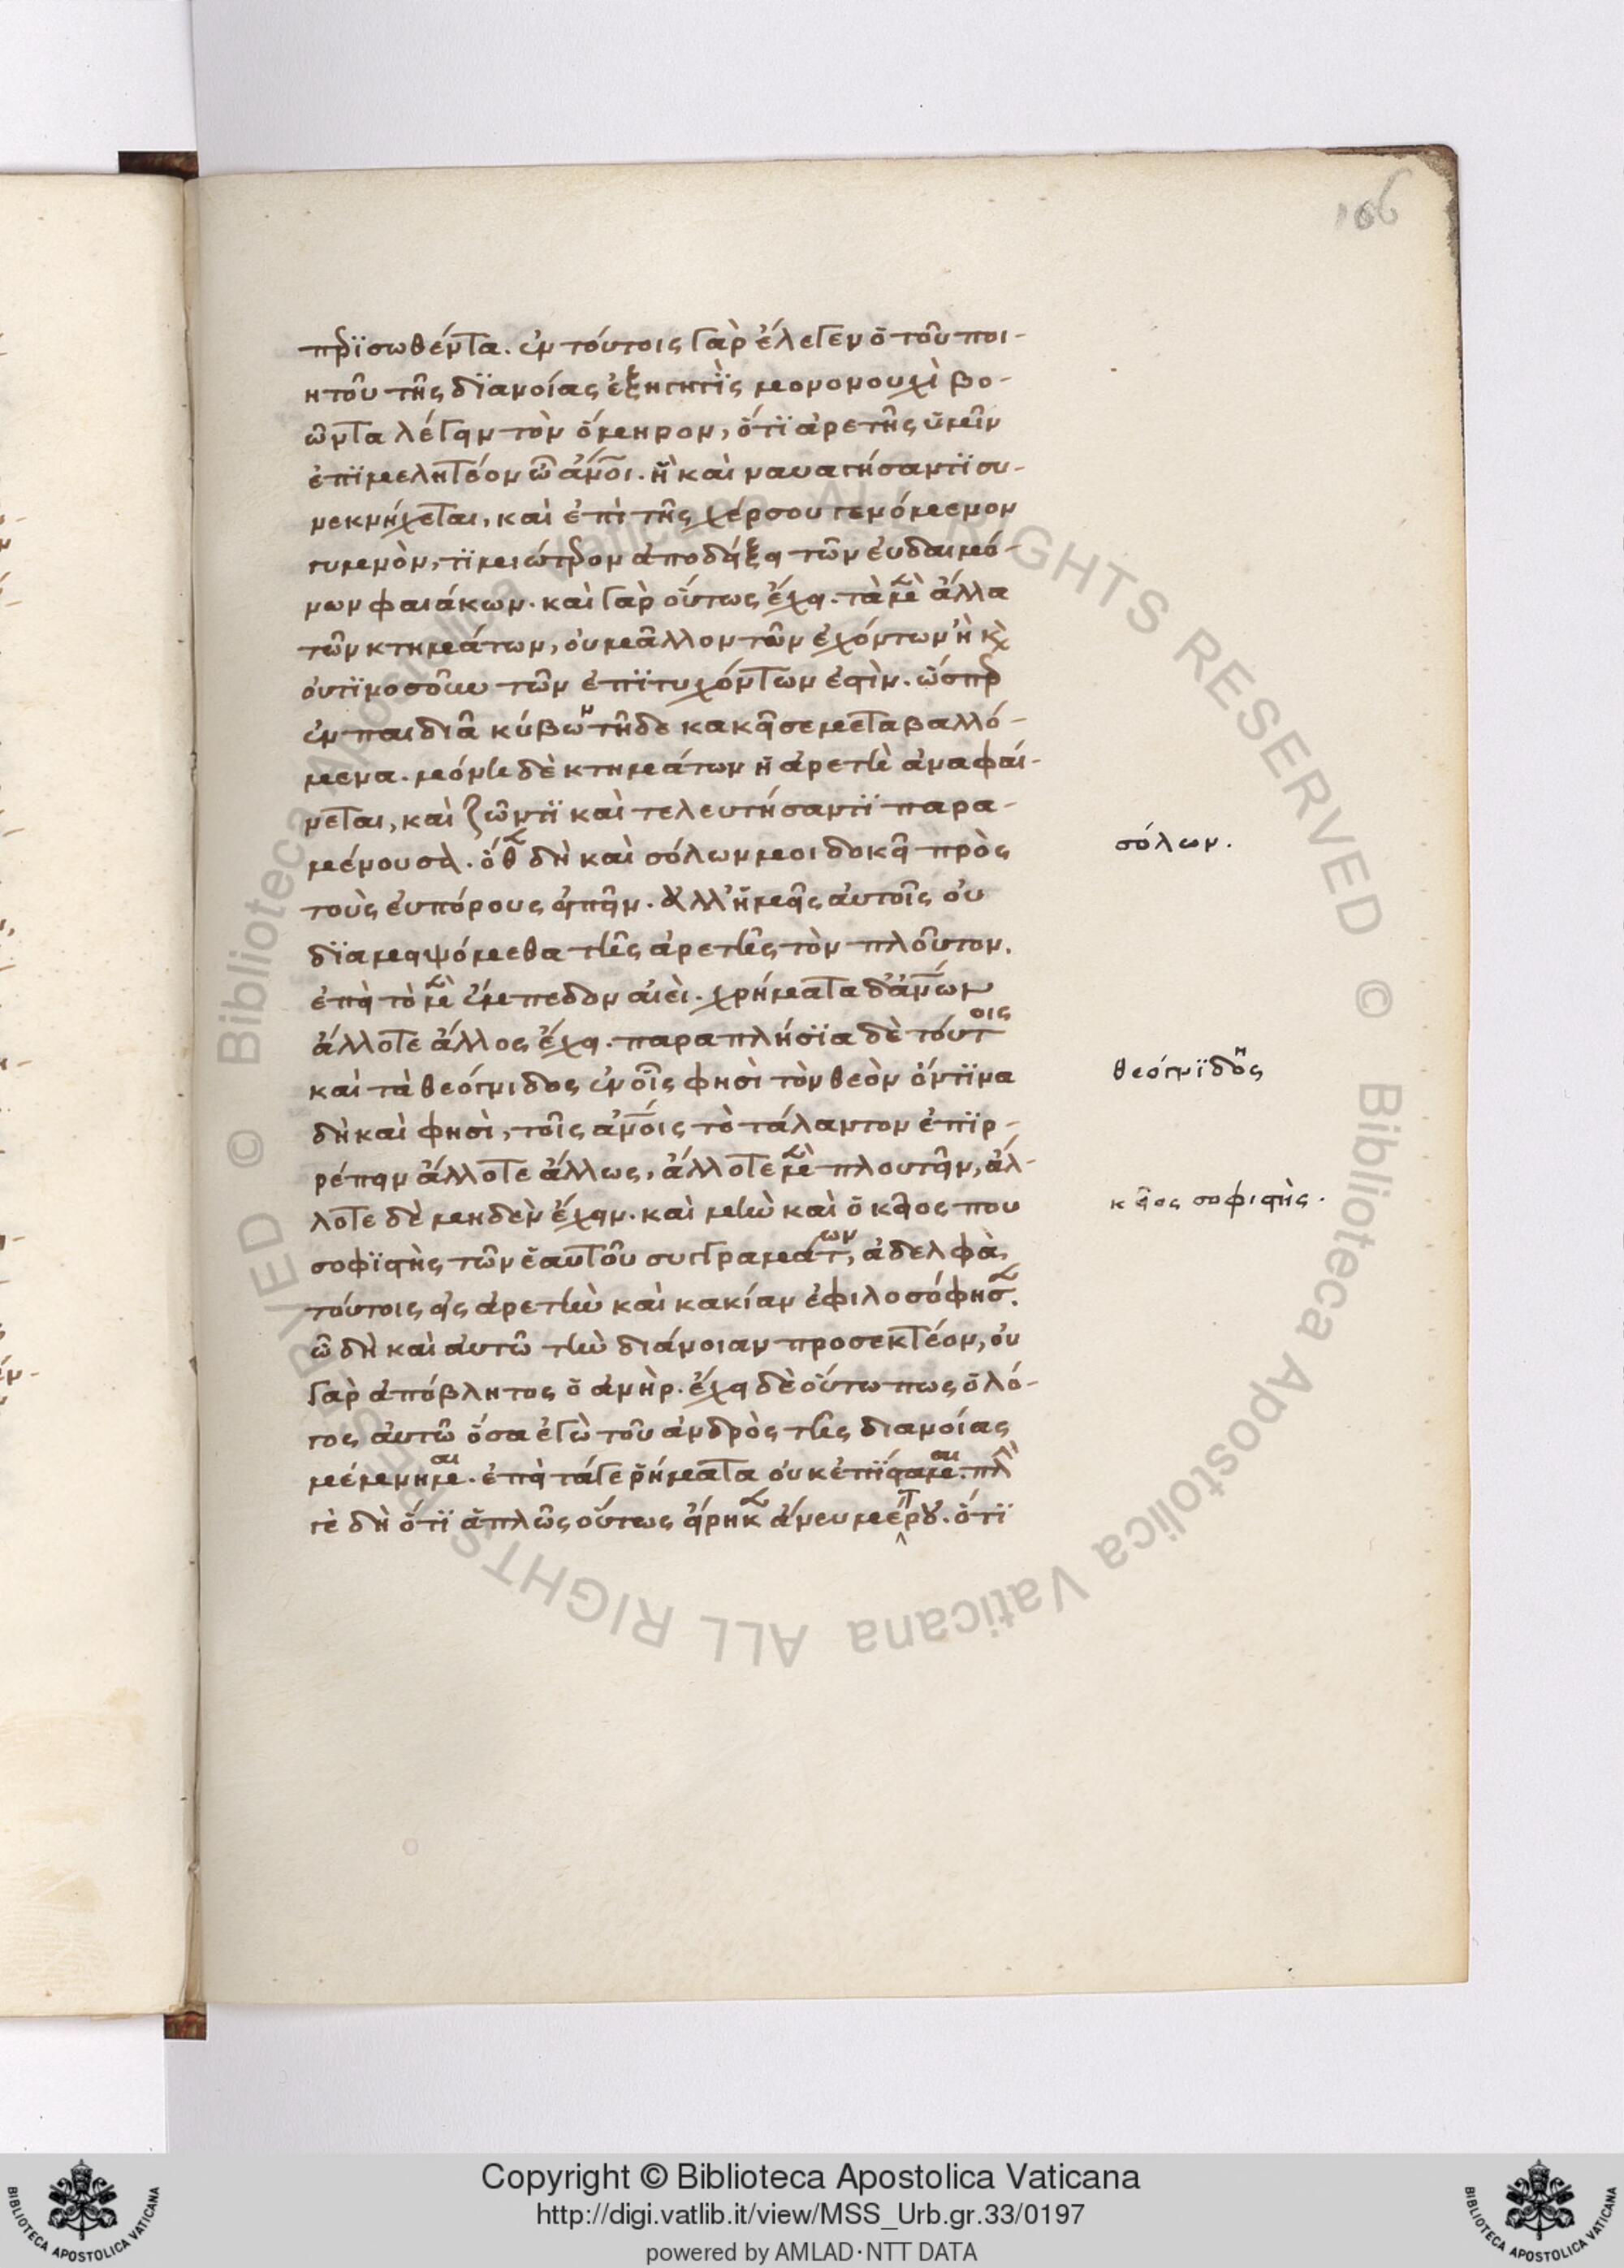 106
πρϊσωθέντα. ἐν τούτοις γὰρ ἔλεγεν ὁ τοῦ ποι-
ητοῦ τῆς δϊανοίας ἐξηγητὴς μονονουχὶ βο-
ῶντα λέγειν τὸν ὅμηρον, ὅτϊ ἀρετῆς ὑμῖν
ἐπϊμελητέον ὦ ἄνοι. ἣ καὶ ναυαγήσαντϊ συ-
νεκνήχεται, καὶ ἐπὶ τῆς χέρσου γενόμενον
γυμνὸν, τϊμιώτερον ἀποδείξει τῶν εὐδαιμό-
νων φαιάκων. καὶ γὰρ οὕτως ἔχει. τὰ μὲν ἄλλα
τῶν κτημάτων, οὐ μᾶλλον τῶν ἐχόντων ἢ καὶ
οὑτϊνοσοῦν τῶν ἐπϊτυχόντων ἐστὶν. ὥσπερ
ἐν παιδιᾶ κύβων τῆδε κακεῖσε μεταβαλλό-
μενα. μόνη δὲ κτημάτων ἡ ἀρετὴ ἀναφαί-
νεται, καὶ ζῶντϊ καὶ τελευτήσαντϊ παρα-
μένουσα. ὅθεν δὴ καὶ σόλων μοι δοκεῖ πρὸς
τοὺς εὐπόρους εἰπεῖν. ἀλλ' ἡμεῖς αὐτοῖς οὐ
δϊαμειψόμεθα τῆς ἀρετῆς τὸν πλοῦτον.
ἐπεὶ τὸ μὲν ἔμπεδον αἰεὶ. χρήματα δ' ἀνων
ἄλλοτε ἄλλος ἔχει. παραπλήσϊα δὲ τούτοις
καὶ τὰ θεόγνιδος ἐν οἷς φησὶ τὸν θεὸν ὅντϊνα
δὴ καὶ φησὶ, τοῖς ἀνοις τὸ τάλαντον ἐπϊρ-
ρέπειν ἄλλοτε ἄλλως, ἄλλοτε μὲν πλουτεῖν, ἄλ-
λοτε δὲ μηδὲν ἔχειν. καὶ μὴν καὶ ὁ κεῖος που
σοφϊστὴς τῶν ἑαυτοῦ συγγραμάτων, ἀδελφὰ
τούτοις εἰς ἀρετὴν καὶ κακίαν ἐφιλοσόφησεν.
ὧ δὴ καὶ αὐτῶ τὴν διάνοιαν προσεκτέον, οὐ
γὰρ ἀπόβλητος ὁ ἀνὴρ. ἔχει δὲ οὕτω πως ὁ λό-
γος αὐτῶ ὅσα ἐγὼ τοῦ ἀνδρὸς τῆς διανοίας
μέμνημαι. ἐπεὶ τάγε ῥήματα οὐκ ἐπϊσταμαι. πλὴν
γὲ δὴ ὅτϊ ἁπλῶς οὕτως εἴρηκεν ἄνευ μέτρου. ὅτϊ
σόλων.
θεόγνϊδος
κεῖος σοφιστὴς.
Copyright © Biblioteca Apostolica Vaticana
http://digi.vatlib.it/view/MSS_Urb.gr.33/0197
powered by AMLAD·NTT DATA
BIBLIOTECA APOSTOLICA VATICANA
BIBLIOTECA APOSTOLICA VATICANA
© Biblioteca Apostolica Vaticana ALL RIGHTS RESERVED © Biblioteca Apostolica Vaticana ALL RIGHTS RESERVED